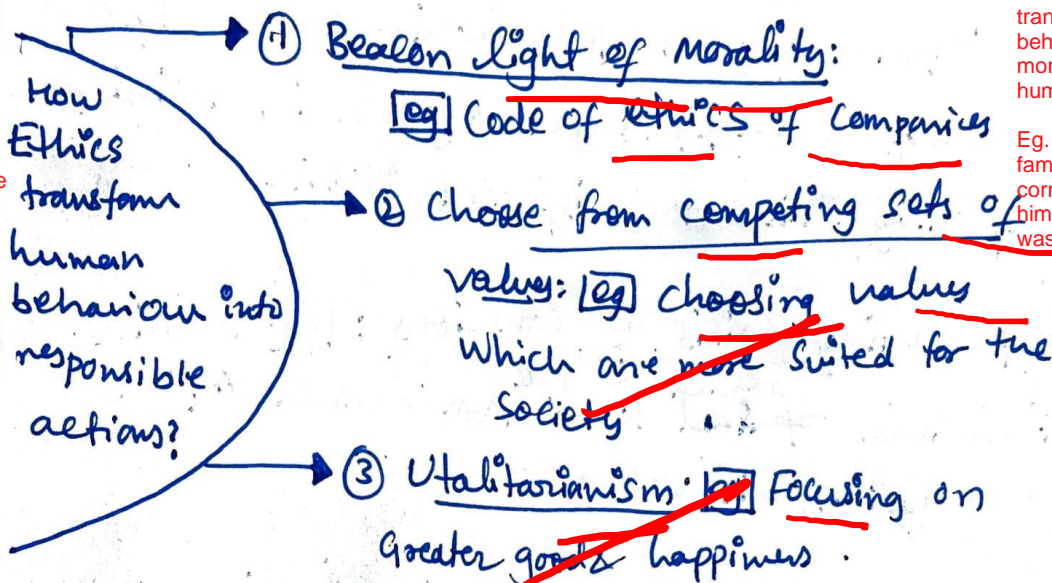 How
Ethics
transform
human
behaviour into
responsible
actions?
① Beacon light of morality:
eg Code of ethics of Companies
② Choose from competing sets of
values: eg choosing values
which are more suited for the
Society
③ Utalitarianism: eg Focusing on
Greater good & happiness.
tran
beh
mor
hum
Eg.
fam
corr
him
was
e